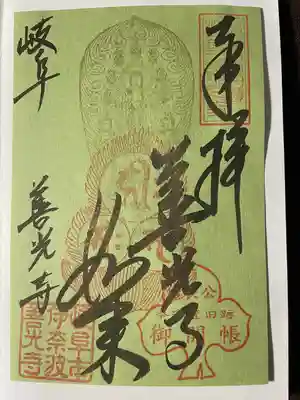 奉拝
善光寺
如来
岐阜
善光寺
御開帳
岐阜市
伊奈波
善光寺